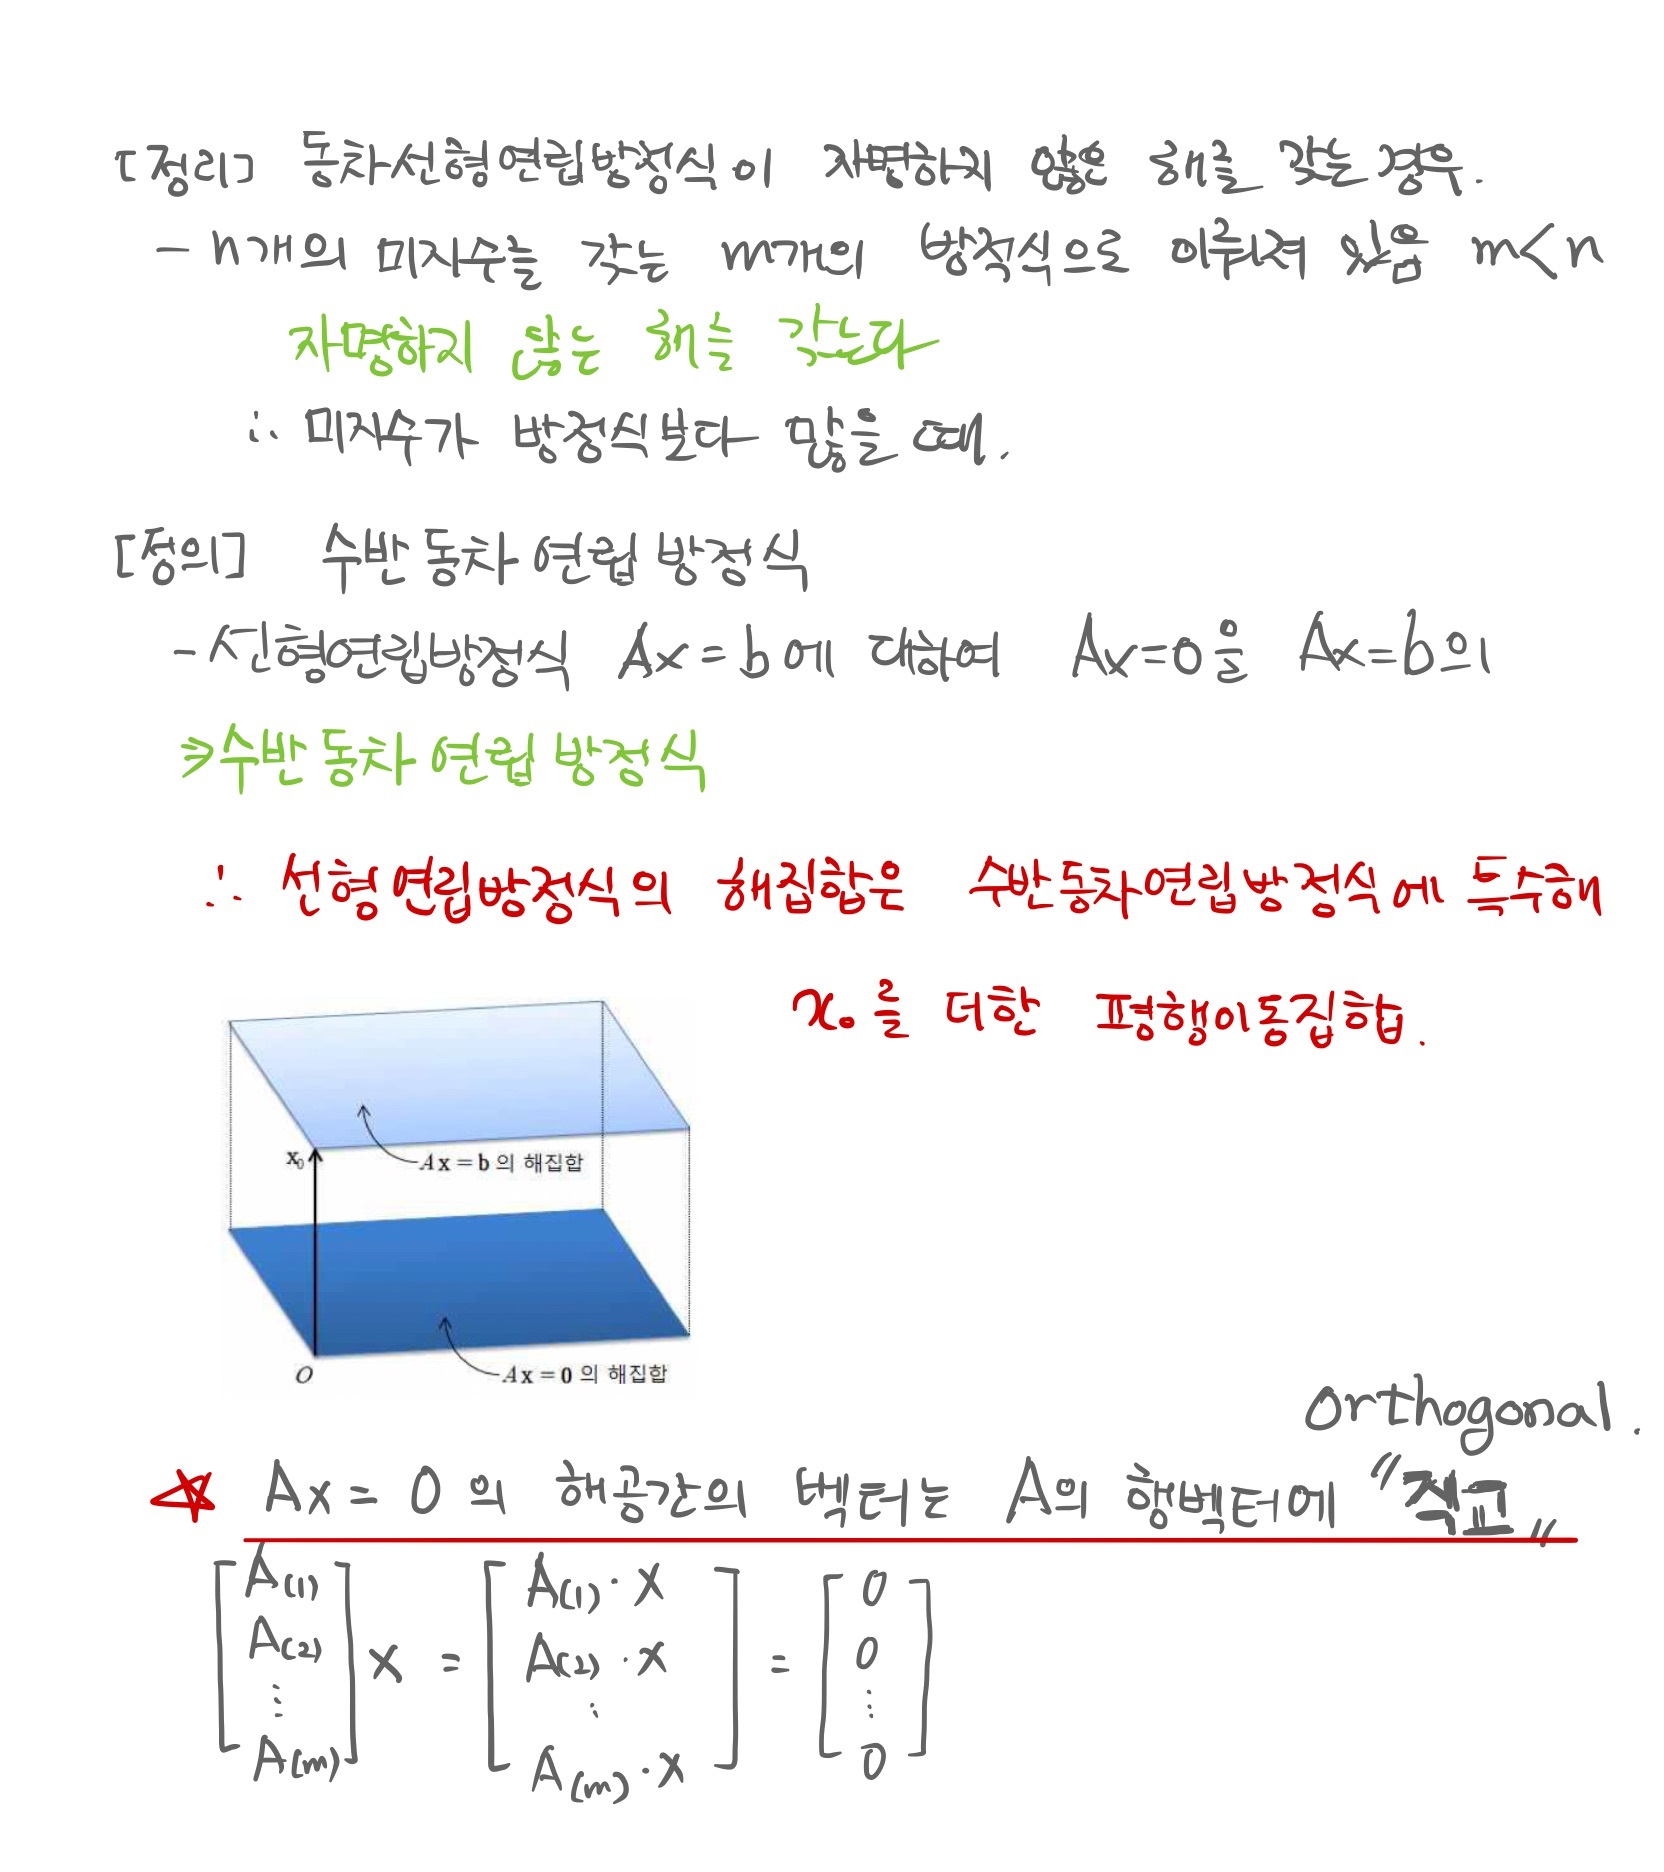 [정리] 동차선형연립방정식이 자명하지 않은 해를 갖는 경우.
- n개의 미지수를 갖는 m개의 방정식으로 이뤄져 있음 m<n
자명하지 않는 해를 갖는다
∴ 미지수가 방정식보다 많을 때.
[정의] 수반 동차 연립 방정식
- 선형연립방정식 Ax=b에 대하여 Ax=0을 Ax=b의
⇒ 수반 동차 연립 방정식
∴ 선형 연립방정식의 해집합은 수반동차연립방정식에 특수해
x₀를 더한 평행이동집합.
x₀
Ax = b 의 해집합
O
Ax = 0 의 해집합
orthogonal.
☆ Ax = 0 의 해공간의 벡터는 A의 행벡터에 "직교"
[A(1) A(2) ⋮ A(m)] x = [A(1)·x A(2)·x ⋮ A(m)·x] = [0 0 ⋮ 0]